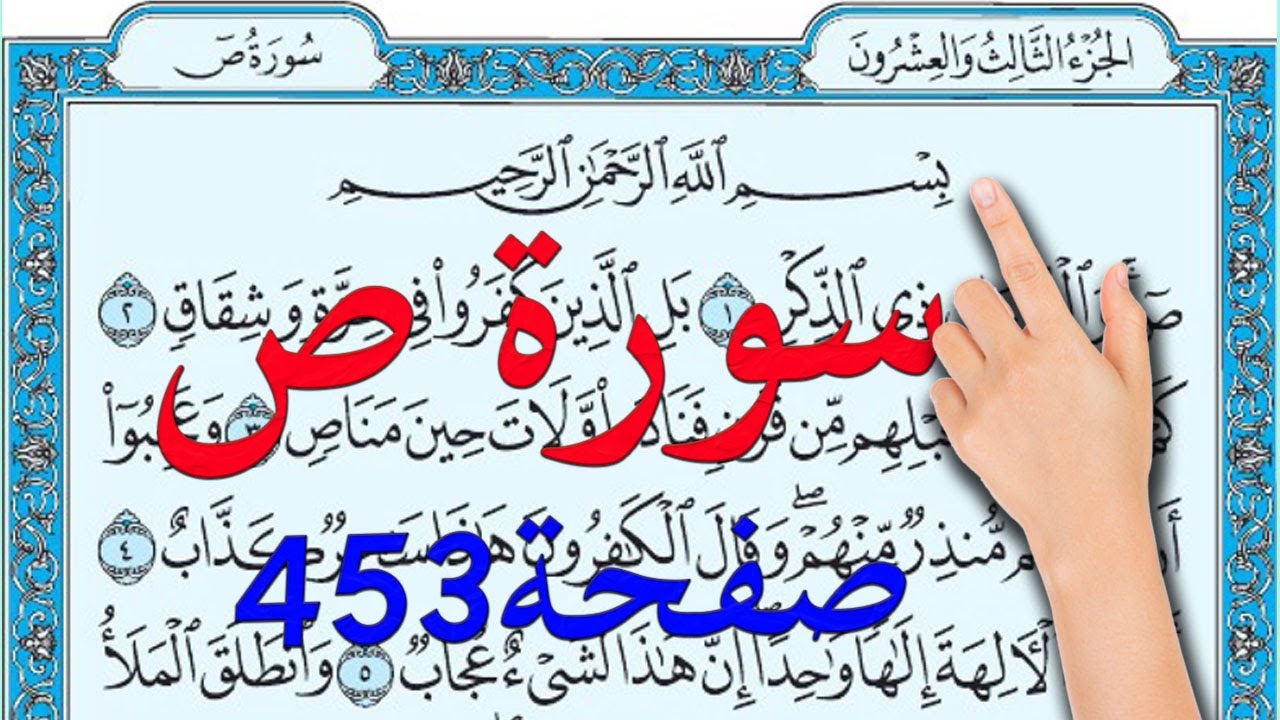 الجُزْءُ الثَّالِثُ وَالعِشْرُونَ
سُورَةُ صٓ
بِسْمِ ٱللَّهِ ٱلرَّحْمَٰنِ ٱلرَّحِيمِ
صٓ ذِي ٱلذِّكْرِ ١ بَلِ ٱلَّذِينَ كَفَرُوا۟ فِي وَشِقَاقٍ ٢
سورة ص
مِّن وَّلَاتَ حِينَ مَنَاصٍ ٣ وَعَجِبُوٓا۟
مُّنذِرٌ مِّنْهُمْ ۖ وَقَالَ ٱلْكَٰفِرُونَ هَٰذَا كَذَّابٌ ٤
صفحة 453
ٱلْءَالِهَةَ إِلَٰهًا وَٰحِدًا إِنَّ هَٰذَا لَشَيْءٌ عُجَابٌ ٥ وَٱنطَلَقَ ٱلْمَلَأُ